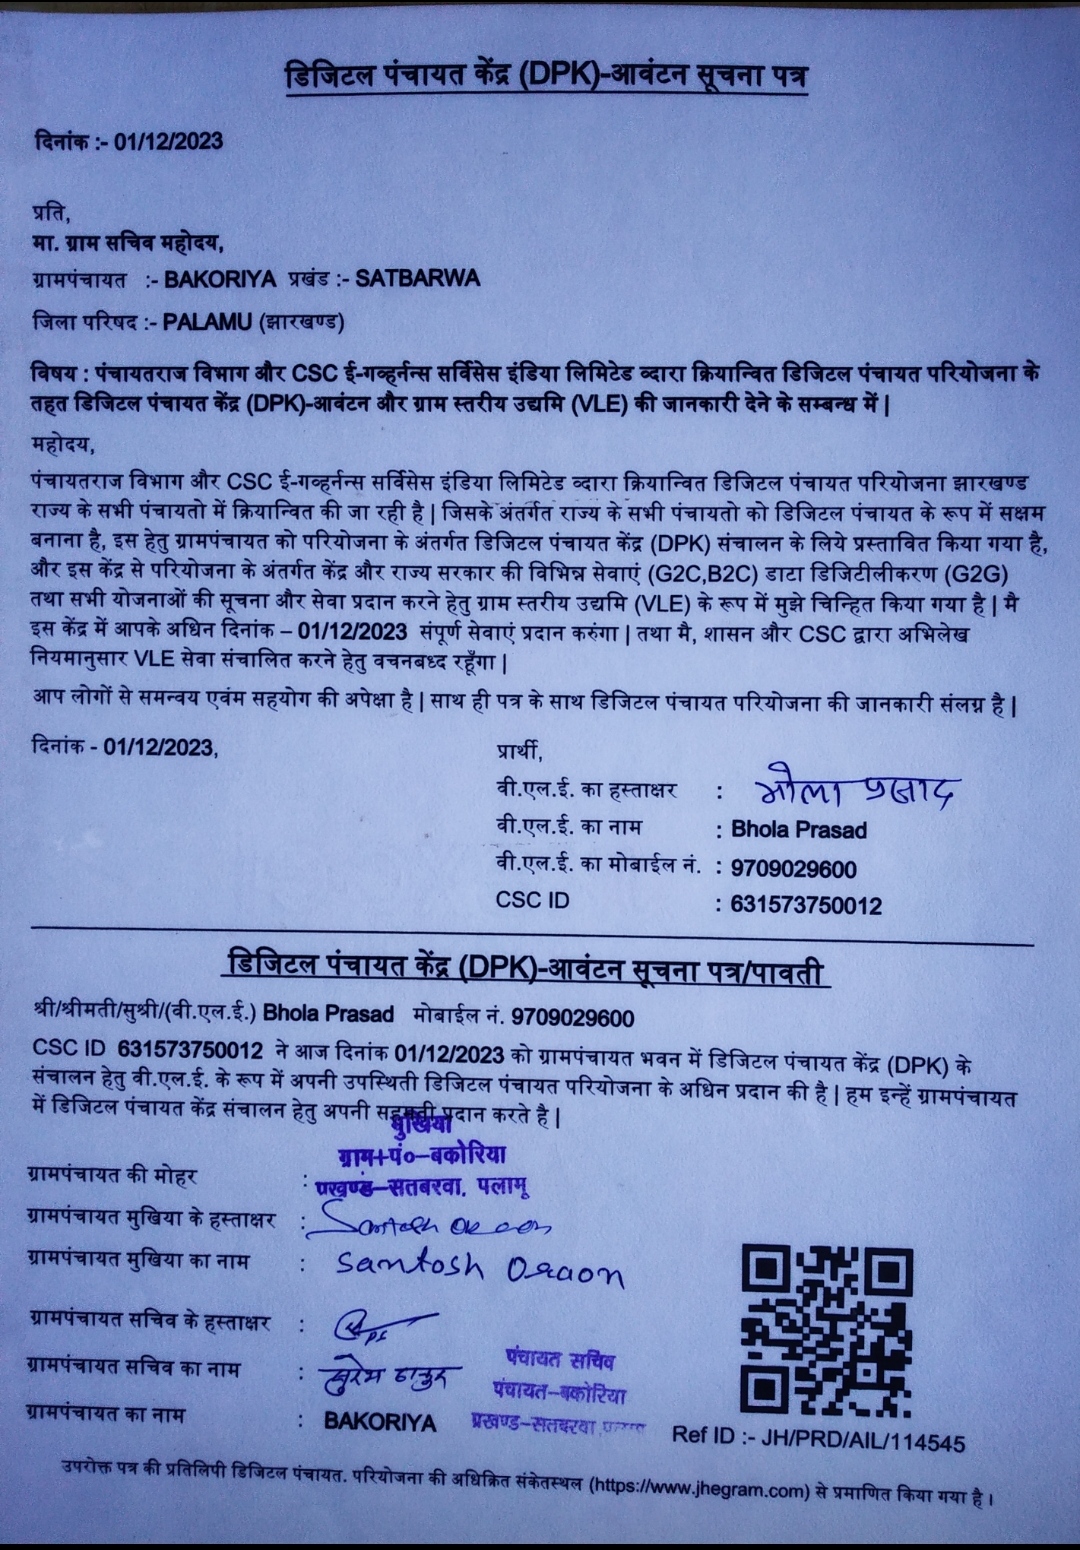 डिजिटल पंचायत केंद्र (DPK)-आवंटन सूचना पत्र
दिनांक :- 01/12/2023
प्रति,
मा. ग्राम सचिव महोदय,
ग्रामपंचायत :- BAKORIYA प्रखंड :- SATBARWA
जिला परिषद :- PALAMU (झारखण्ड)
विषय : पंचायतराज विभाग और CSC ई-गव्हर्नन्स सर्विसेस इंडिया लिमिटेड व्दारा क्रियान्वित डिजिटल पंचायत परियोजना के
तहत डिजिटल पंचायत केंद्र (DPK)-आवंटन और ग्राम स्तरीय उद्यमि (VLE) की जानकारी देने के सम्बन्ध में |
महोदय,
पंचायतराज विभाग और CSC ई-गव्हर्नन्स सर्विसेस इंडिया लिमिटेड व्दारा क्रियान्वित डिजिटल पंचायत परियोजना झारखण्ड
राज्य के सभी पंचायतो में क्रियान्वित की जा रही है | जिसके अंतर्गत राज्य के सभी पंचायतो को डिजिटल पंचायत के रूप में सक्षम
बनाना है, इस हेतु ग्रामपंचायत को परियोजना के अंतर्गत डिजिटल पंचायत केंद्र (DPK) संचालन के लिये प्रस्तावित किया गया है,
और इस केंद्र से परियोजना के अंतर्गत केंद्र और राज्य सरकार की विभिन्न सेवाएं (G2C,B2C) डाटा डिजिटीलीकरण (G2G)
तथा सभी योजनाओं की सूचना और सेवा प्रदान करने हेतु ग्राम स्तरीय उद्यमि (VLE) के रूप में मुझे चिन्हित किया गया है | मै
इस केंद्र में आपके अधिन दिनांक – 01/12/2023 संपूर्ण सेवाएं प्रदान करुंगा | तथा मै, शासन और CSC द्वारा अभिलेख
नियमानुसार VLE सेवा संचालित करने हेतु वचनबध्द रहूँगा |
आप लोगों से समन्वय एवंम सहयोग की अपेक्षा है | साथ ही पत्र के साथ डिजिटल पंचायत परियोजना की जानकारी संलग्न है |
दिनांक - 01/12/2023,
प्रार्थी,
वी.एल.ई. का हस्ताक्षर : भोला प्रसाद
वी.एल.ई. का नाम : Bhola Prasad
वी.एल.ई. का मोबाईल नं. : 9709029600
CSC ID : 631573750012
डिजिटल पंचायत केंद्र (DPK)-आवंटन सूचना पत्र/पावती
श्री/श्रीमती/सुश्री/(वी.एल.ई.) Bhola Prasad मोबाईल नं. 9709029600
CSC ID 631573750012 ने आज दिनांक 01/12/2023 को ग्रामपंचायत भवन में डिजिटल पंचायत केंद्र (DPK) के
संचालन हेतु वी.एल.ई. के रूप में अपनी उपस्थिती डिजिटल पंचायत परियोजना के अधिन प्रदान की है | हम इन्हें ग्रामपंचायत
में डिजिटल पंचायत केंद्र संचालन हेतु अपनी सहमती प्रदान करते है |
मुखिया
ग्राम+पं०-बकोरिया
प्रखण्ड-सतबरवा, पलामू
ग्रामपंचायत की मोहर :
ग्रामपंचायत मुखिया के हस्ताक्षर : Santosh Oraon
ग्रामपंचायत मुखिया का नाम : Santosh Oraon
ग्रामपंचायत सचिव के हस्ताक्षर :
ग्रामपंचायत सचिव का नाम : सुरेश ठाकुर
पंचायत सचिव
पंचायत-बकोरिया
प्रखण्ड-सतबरवा,
ग्रामपंचायत का नाम : BAKORIYA
Ref ID :- JH/PRD/AIL/114545
उपरोक्त पत्र की प्रतिलिपी डिजिटल पंचायत. परियोजना की अधिक्रित संकेतस्थल (https://www.jhegram.com) से प्रमाणित किया गया है ।